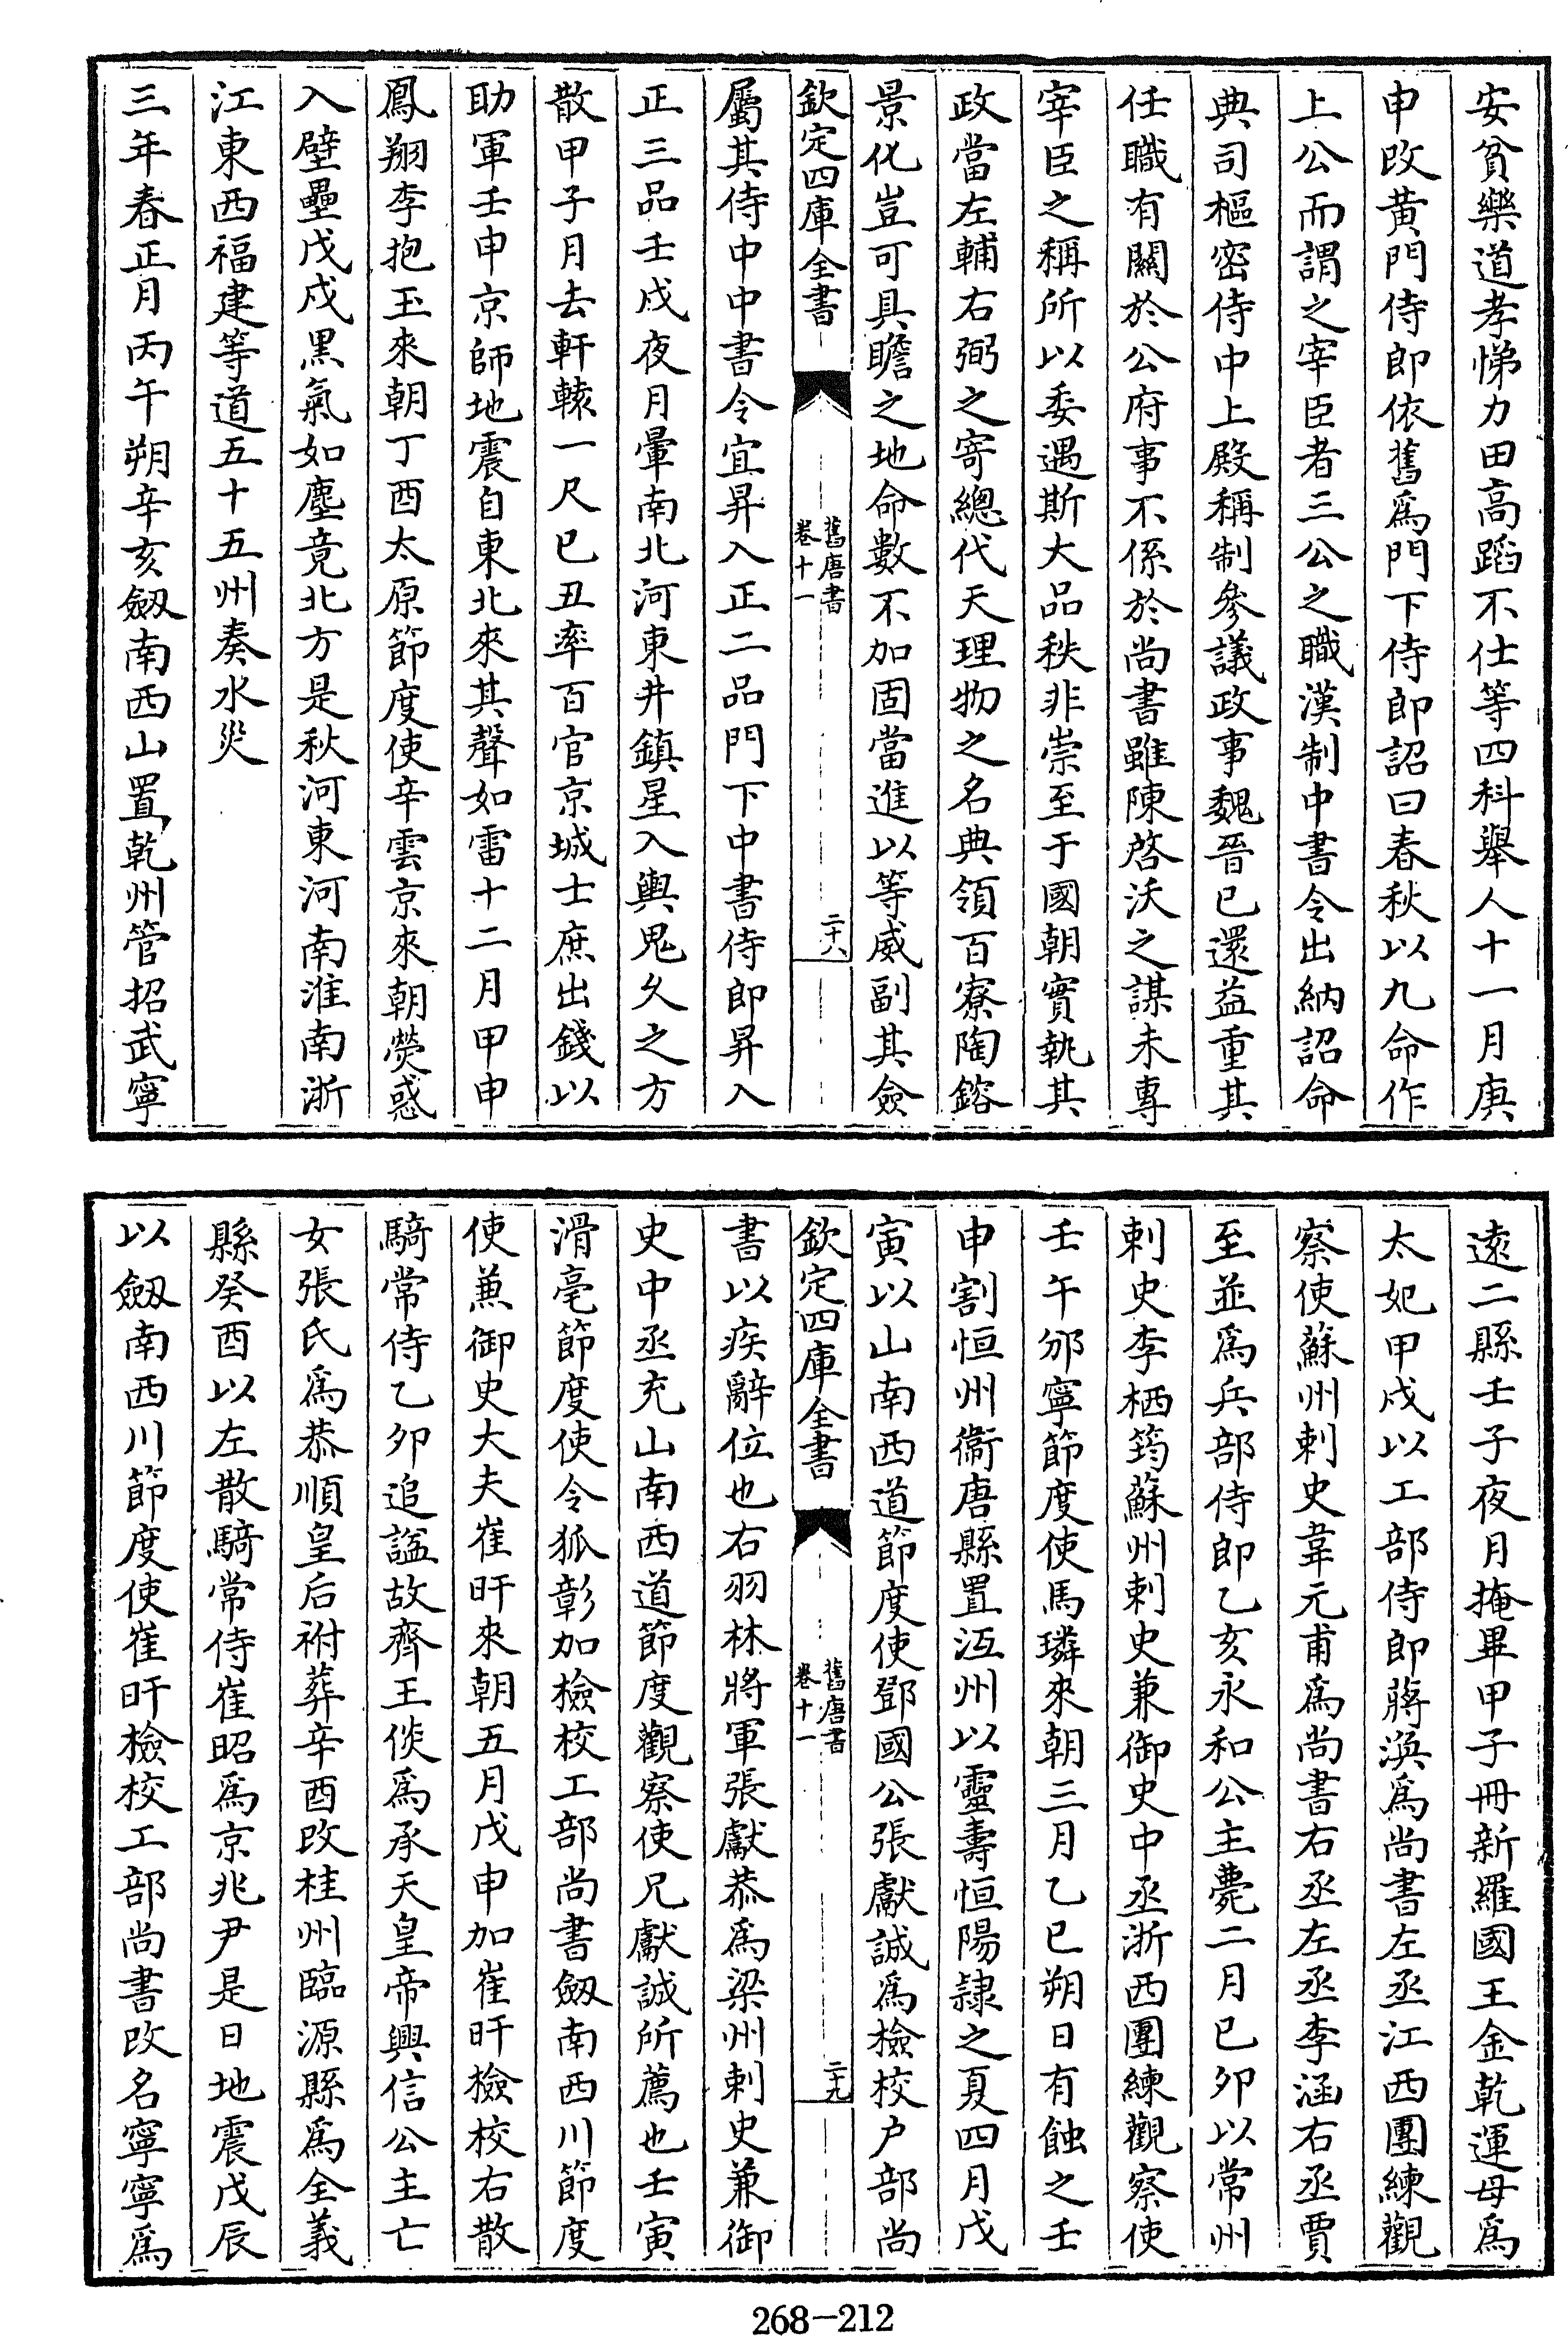 安貧樂道孝悌力田高蹈不仕等四科舉人十一月庚
申改黃門侍郎依舊爲門下侍郎詔曰春秋以九命作
上公而謂之宰臣者三公之職漢制中書令出納詔命
典司樞密侍中上殿稱制參議政事魏晉已還益重其
任職有關於公府事不係於尚書雖陳啓沃之謀未專
宰臣之稱所以委遇斯大品秩非崇至于國朝實執其
政當左輔右弼之寄總代天理物之名典領百寮陶鎔
景化豈可具瞻之地命數不加固當進以等威副其僉
欽定四庫全書
舊唐書
卷十一
二十八
屬其侍中中書令宜昇入正二品門下中書侍郎昇入
正三品壬戌夜月暈南北河東井鎮星入輿鬼久之方
散甲子月去軒轅一尺已丑率百官京城士庶出錢以
助軍壬申京師地震自東北來其聲如雷十二月甲申
鳳翔李抱玉來朝丁酉太原節度使辛雲京來朝熒惑
入壁壘戊戌黑氣如塵竟北方是秋河東河南淮南浙
江東西福建等道五十五州奏水災
三年春正月丙午朔辛亥劔南西山置乾州管招武寧
遠二縣壬子夜月掩畢甲子冊新羅國王金乾運母爲
太妃甲戌以工部侍郎蔣渙爲尚書左丞江西團練觀
察使蘇州刺史韋元甫爲尚書右丞左丞李涵右丞賈
至並爲兵部侍郎乙亥永和公主薨二月已卯以常州
刺史李栖筠蘇州刺史兼御史中丞浙西團練觀察使
壬午邠寧節度使馬璘來朝三月乙巳朔日有蝕之壬
申割恒州衞唐縣置沍州以靈壽恒陽隸之夏四月戊
寅以山南西道節度使鄧國公張獻誠爲檢校户部尚
欽定四庫全書
舊唐書
卷十一
二十九
書以疾辭位也右羽林將軍張獻恭爲梁州刺史兼御
史中丞充山南西道節度觀察使兄獻誠所薦也壬寅
滑亳節度使令狐彰加檢校工部尚書劔南西川節度
使兼御史大夫崔旰來朝五月戊申加崔旰檢校右散
騎常侍乙卯追諡故齊王倓爲承天皇帝興信公主亡
女張氏爲恭順皇后祔葬辛酉改桂州臨源縣爲全義
縣癸酉以左散騎常侍崔昭爲京兆尹是日地震戊辰
以劔南西川節度使崔旰檢校工部尚書改名寧寧爲
268-212